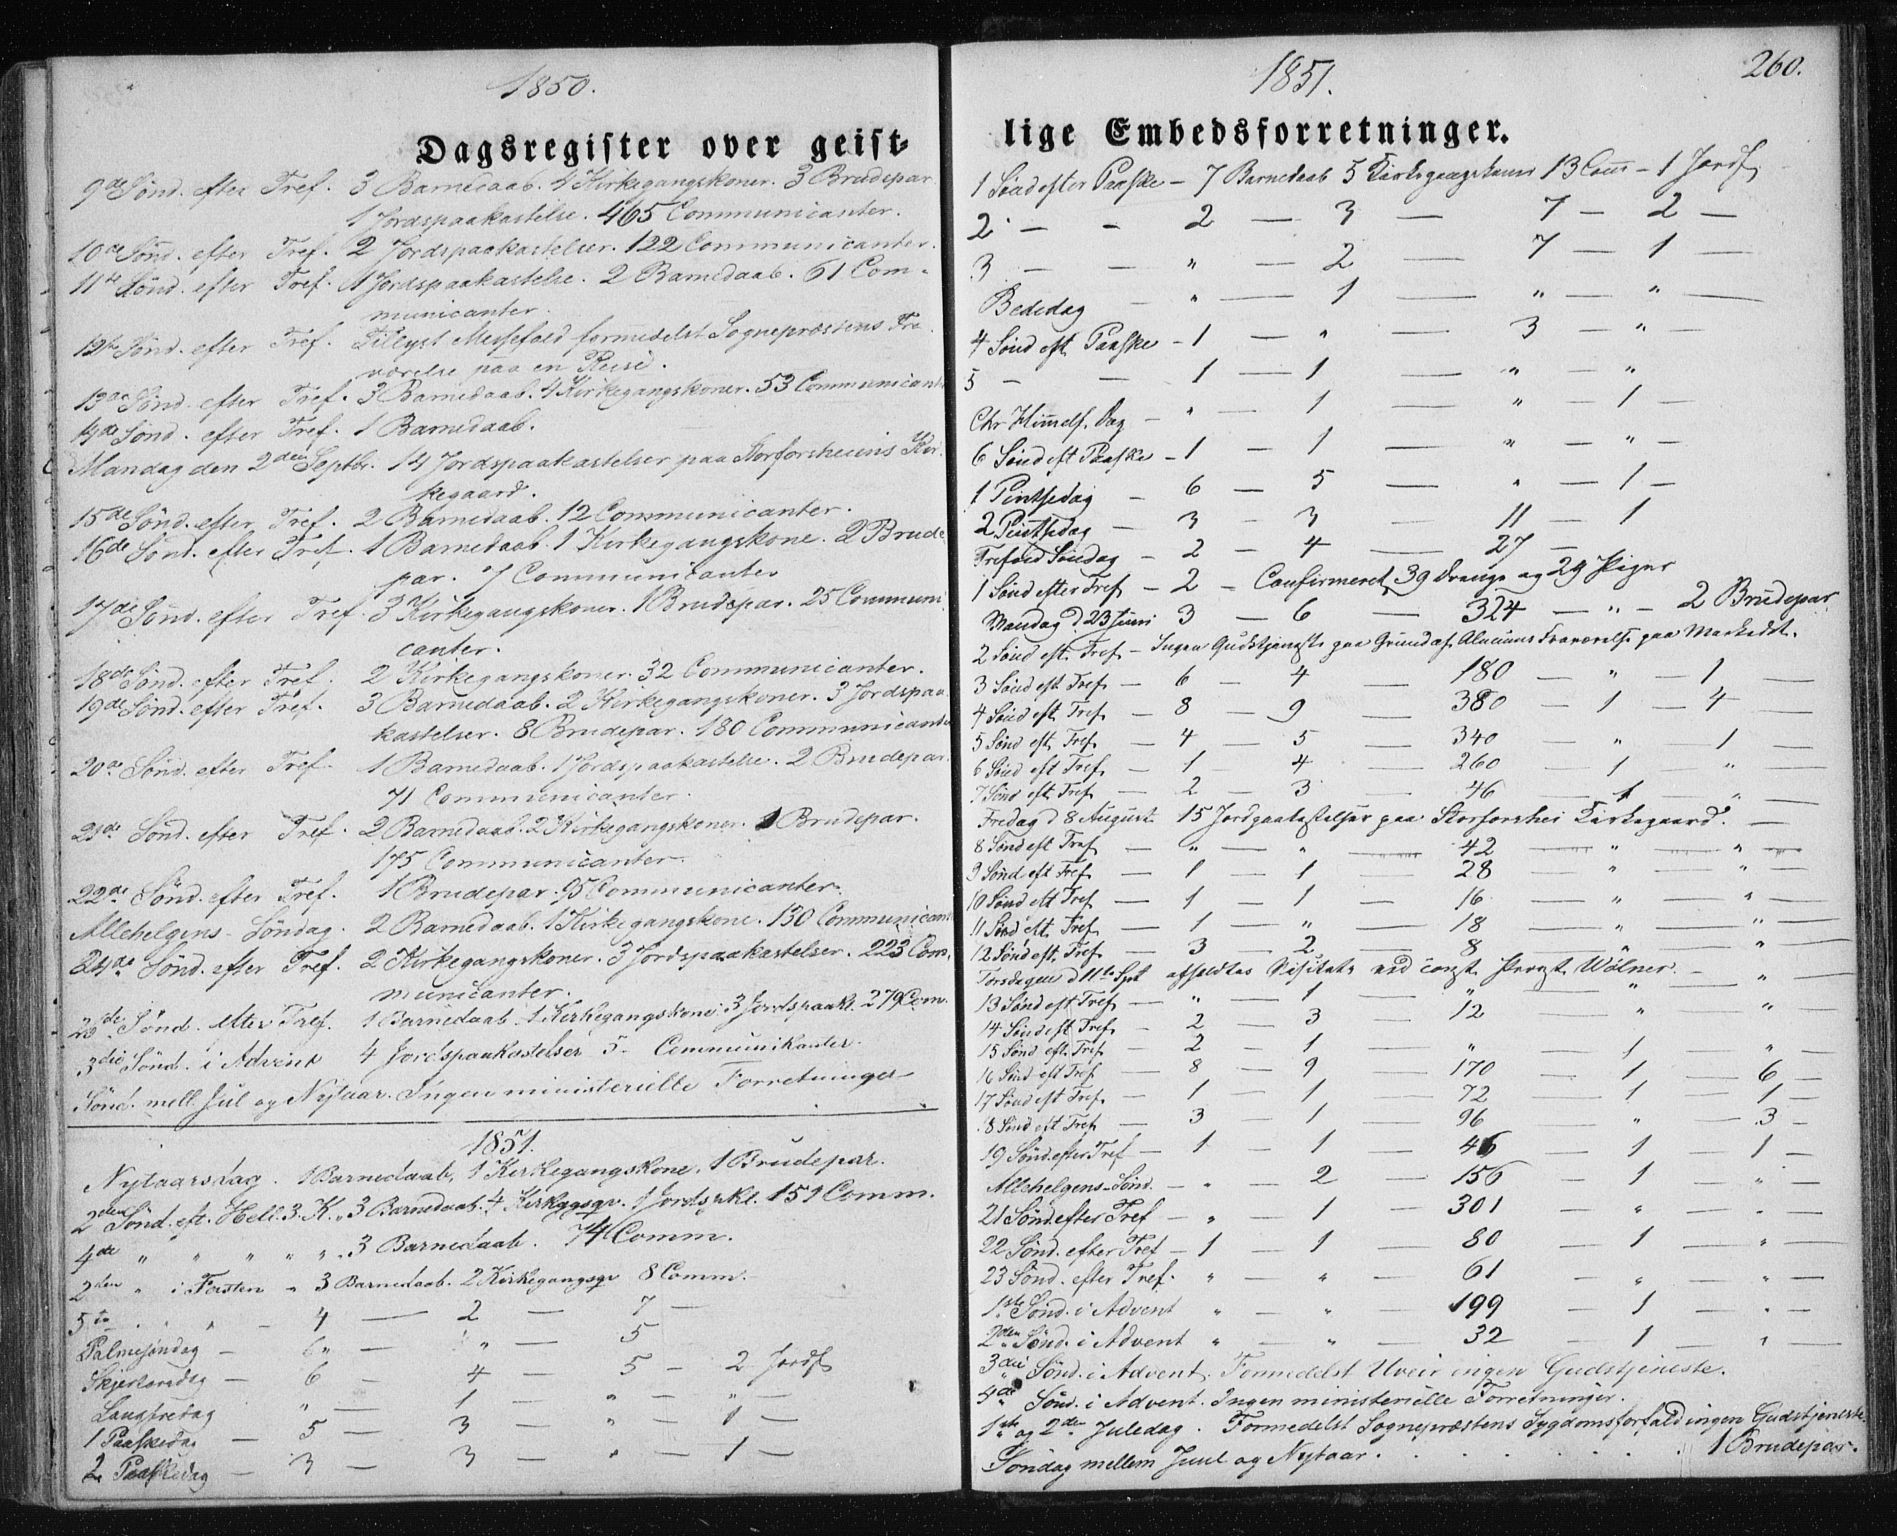 1850.
Dagsregister over geist-
9de Sønd. efter Tref. 3 Barnedaab. 4 Kirkegangskoner. 3 Brudepar
1 Jordspaakastelse. 465 Communicanter.
10de Sønd. efter Tref. 2 Jordspaakastelser. 122 Communicanter.
11te Sønd. efter Tref. 1 Jordspaakastelse. 2 Barnedaab. 61 Com-
municanter.
12te Sønd. efter Tref. Tillyst Messefald formedelst Sognepræstens Fra-
værelse paa en Reise.
13de Sønd. efter Tref. 3 Barnedaab. 4 Kirkegangskoner. 53 Communicant
14de Sønd. efter Tref. 1 Barnedaab.
Mandag den 2den Septbr. 14 Jordspaakastelser paa Storforsheiens Kir-
kegaard.
15de Sønd. efter Tref. 2 Barnedaab. 12 Communicanter.
16de Sønd. efter Tref. 1 Barnedaab. 1 Kirkegangskone. 2 Brude-
par. 7 Communicanter
17de Sønd. efter Tref. 3 Kirkegangskoner. 1 Brudepar. 25 Communi
canter.
18de Sønd. efter Tref. 2 Kirkegangskoner. 32 Communicanter.
19de Sønd. efter Tref. 3 Barnedaab. 2 Kirkegangskoner. 3 Jordspaa-
kastelser. 8 Brudepar. 180 Communicanter
20de Sønd. efter Tref. 1 Barnedaab. 1 Jordspaakastelse. 2 Brudepar.
71 Communicanter.
21de Sønd. efter Tref. 2 Barnedaab. 2 Kirkegangskoner. 1 Brudepar.
175 Communicanter.
22de Sønd. efter Tref. 1 Brudepar. 95 Communicanter.
Allehelgens-Søndag. 2 Barnedaab. 1 Kirkegangskone. 130 Communicant
24de Sønd. efter Tref. 2 Kirkegangskoner. 3 Jordspaakastelser. 223 Com-
municanter.
25de Sønd. efter Tref. 1 Barnedaab. 1 Kirkegangskone. 3 Jordspaak. 279 Com.
3die Sønd. i Advent 4 Jordspaakastelser 5 Communikanter.
Sønd. mell. Jul og Nytaar. Ingen ministerielle Forretninger
1851.
Nytaarsdag. 1 Barnedaab, 1 Kirkegangskone, 1 Brudepar.
2den Sønd. eft. Hell. 3. K. „ 3 Barnedaab. 4 Kirkggsgr. 1 Jordspkt. 151 Comm.
4de „ „ „ „ „ 3 Barnedaab. 74 Comm.
2den „ i Fasten „ 3 Barnedaab. 2 Kirkegangsgr 8 Comm.
5te „ „ „ — 4 — 2 — 7 —
Palmesøndag — 6 — „ — 5
Skjertorsdag — 6 — 4 — 5 — 2 Jordf
Langfredag „ — 1 — „ — „ —
1 Paaskedag — 5 — 3 — „ — 1 —
2 Paaskedag — 3 — 3 — „ — 1 —
1851.
260.
lige Embedsforretninger.
1 Sønd efter Paaske — 7 Barnedaab 5 Kirkegangskoner 13 Com — 1 Jordf
2 — — 2 — 3 — 7 — 2 —
3 — — „ — 2 — 7 — 1 —
Bededag — „ — 1 — „ — „ —
4 Sønd eft Paaske — 1 — „ — 3 — „ —
5 — — 1 — 1 — „ — „
Chr Himmelf. Dag — „ — 1 — „ — 1 —
6 Sønd eft Paaske — 1 — 1 — „ — „ —
1 Pintsedag — 6 — 5 „ — 1 —
2 Pintsedag — 3 — 3 — 11 — 1
Trefold Søndag — 2 — 4 — 27 —
1 Sønd efter Tref — 2 — Confirmeret 39 Drenge og 29 Piger
Mandag d. 23 Juni 3 — 6 — 324 — „ — 2 Brudepar
2 Sønd eft. Tref — Ingen Gudstjeneste paa Grund af Almuens Fraværelse paa Markedet.
3 Sønd eft Tref — 6 — 4 — 180 — „ — 1 —
4 Sønd eft Tref — 8 — 9 — 380 — 1 — 4 —
5 Sønd eft. Tref — 4 — 5 — 340 — „ — 1 —
6 Sønd eft Tref — 1 — 4 — 260 — 1 — „ —
7 Sønd eft Tref — 2 — 3 — 46 — 1 — „ —
Fredag d 8 August 15 Jordpaakastelser paa Storforshei Kirkegaard. —
8 Sønd eft Tref — „ — „ — 42 — „ — „ —
9 Sønd eft Tref — 1 — 1 — 28 — „ — „
10 Sønd eft Tref — 1 — 1 — 16 — „ — „
11 Sønd eft. Tref — 1 — „ — 18 — „ — „ —
12 Sønd eft. Tref — 3 — 2 — 8 — „ — „
Torsdagen d 11te Spt afholdtes Visitats ved const. Provst Wølner. — „ —
13 Sønd eft Tref — „ — 1 — „ — „ — „
14 Sønd eft Tref — 2 — 3 — 12 — „ — „
15 Sønd eft. Tref — 2 — 1 — „ — 1 — „ —
16 Sønd eft Tref — 8 — 9 — 170 — 1 — 6 —
17 Sønd eft Tref — 1 — 1 — 72 — 1 — 1 —
18 Sønd eft Tref — 3 — 1 — 96 — „ — 3 —
19 Sønd. efter Tref — 1 — 1 — 46 — 1 — 1 —
Allehelgens-Sønd. — „ — 2 — 156 — 1 — „ —
21 Sønd. efter Tref — „ — 1 — 301 — „ — „ —
22 Sønd. efter Tref — 1 — 1 — 80 — 1 — „ —
23 Sønd. efter Tref. „ — „ — 61 — „ — „ —
1ste Sønd. i Advent „ — „ — 199 — 1 — „ —
2den Sønd. i Advent „ — „ — 32 — 1 — „ —
3die Sønd. i Advent. Formedelst Uveir ingen Gudstjeneste.
4de Sønd. i Advent. Ingen ministerielle Forretninger.
1ste og 2den Juledag. Formedelst Sognepræstens Sygdomsforfald ingen Gudstjeneste.
Søndag mellem Juul og Nytaar. . . . . . . . 1 Brudepar.